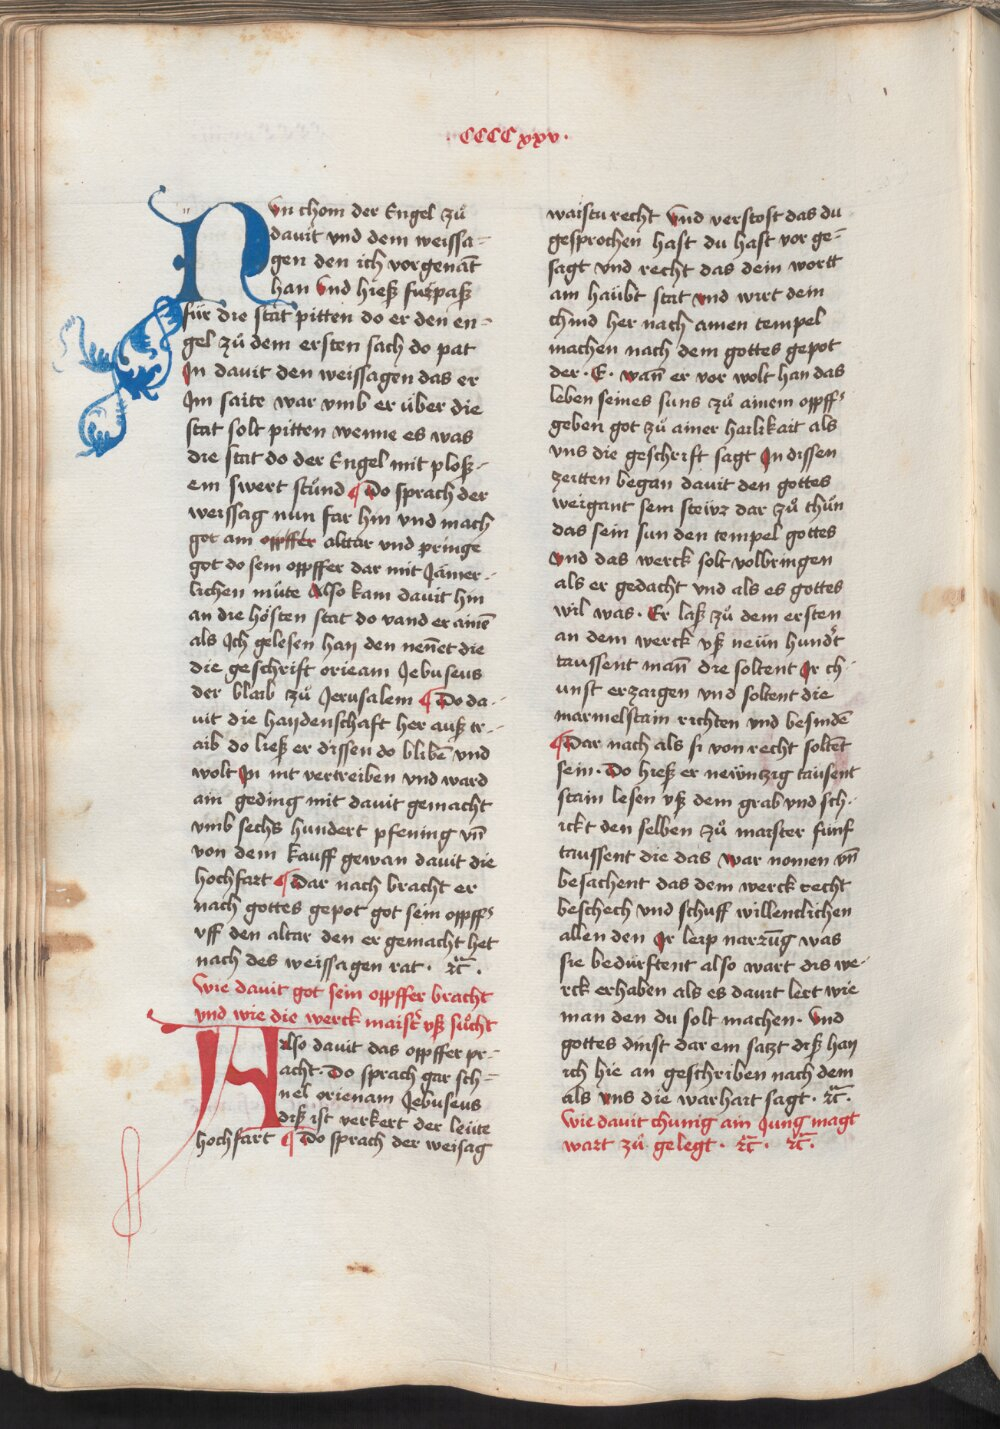 ·CCCCxxv·
Nvn chom der Engel zů
dauit vnd dem weissa=
gen den ich vorgenāt
han Vnd hieß fürpaß
für die stat pitten do er den en=
gel zů dem ersten sach do pat
In dauit den weissagen das er
Im saite war vmb er über die
stat solt pitten wenne es was
die stat do der Engel mit ploß=
em swert stůnd ¶ Do sprach der
weissag nun far hin vnd mach
got ain oppffer alttar vnd pringe
got do sein oppffer dar mit Jämer=
lichen müte Also kam dauit hin
an die hösten stat do vand er ainē
als Jch gelesen han den nēnet die
die geschrift orieam Jebuseus
der blaib zů Jerusalem ¶ Do da-
uit die haydenschaft her auß tr-
aib do ließ er dissen do blibē vnd
wolt In nit vertreiben vnd ward
ain geding mit dauit gemacht
vmb sechs hundert pfening vn̄
von dem kauff gewan dauit die
hochfart ¶ Dar nach bracht er
nach gottes gepot got sein oppff͛
vff den altar den er gemacht het
nach des weissagen rat · ꝛc̄ ·
Wie dauit got sein oppffer bracht
vnd wie die werck maist͛ vß sůcht
Also dauit das oppffer pr=
acht · Do sprach gar sch=
nel orienam Jebuseus
diß ist verkert der leüte
hochfart ¶ Do sprach der weisag
waistu recht Vnd verstost das du
gesprochen hast du hast vor ge=
sagt vnd recht das dein wortt
am haübt stat vnd wirt dein
chind her nach ainen tempel
machen nach dem gottes gepot
der · E · wan̄ er vor wolt han das
leben seines suns zů ainem oppff͛
geben got zů ainer hailikait als
vns die geschrift sagt In dissen
zeitten began dauit den gottes
weigant sein steivr dar zů thůn
das sein sun den tempel gottes
vnd das werck solt volbringen
als er gedacht vnd als es gottes
wil was · Er laß zů dem ersten
an dem werck vß neün hund͛t
taussent man̄ die soltent Jr ch-
unst erzaigen vnd soltent die
marmelstain richten vnd besindē
¶ Dar nach als si von recht soltēt
sein · Do hieß er newntzig tausent
stain lesen vß dem grab vnd sch-
ickt den selben zů maister fünf
taussent die das war nomen vn̄
besachent das dem werck recht
beschech vnd schuff willenclichen
allen den Jr leip narzūg was
sie bedürftent also wart dis we-
rck erhaben als es dauit lert wie
man den du solt machen · Vnd
gottes dinst dar ein satzt diß han
ich hie an geschriben nach dem
als vns die warhait sagt · ꝛc̄ ·
Wie dauit chunig ain Jung magt
wart zů gelegt · ꝛc̄ · ꝛc̄ ·